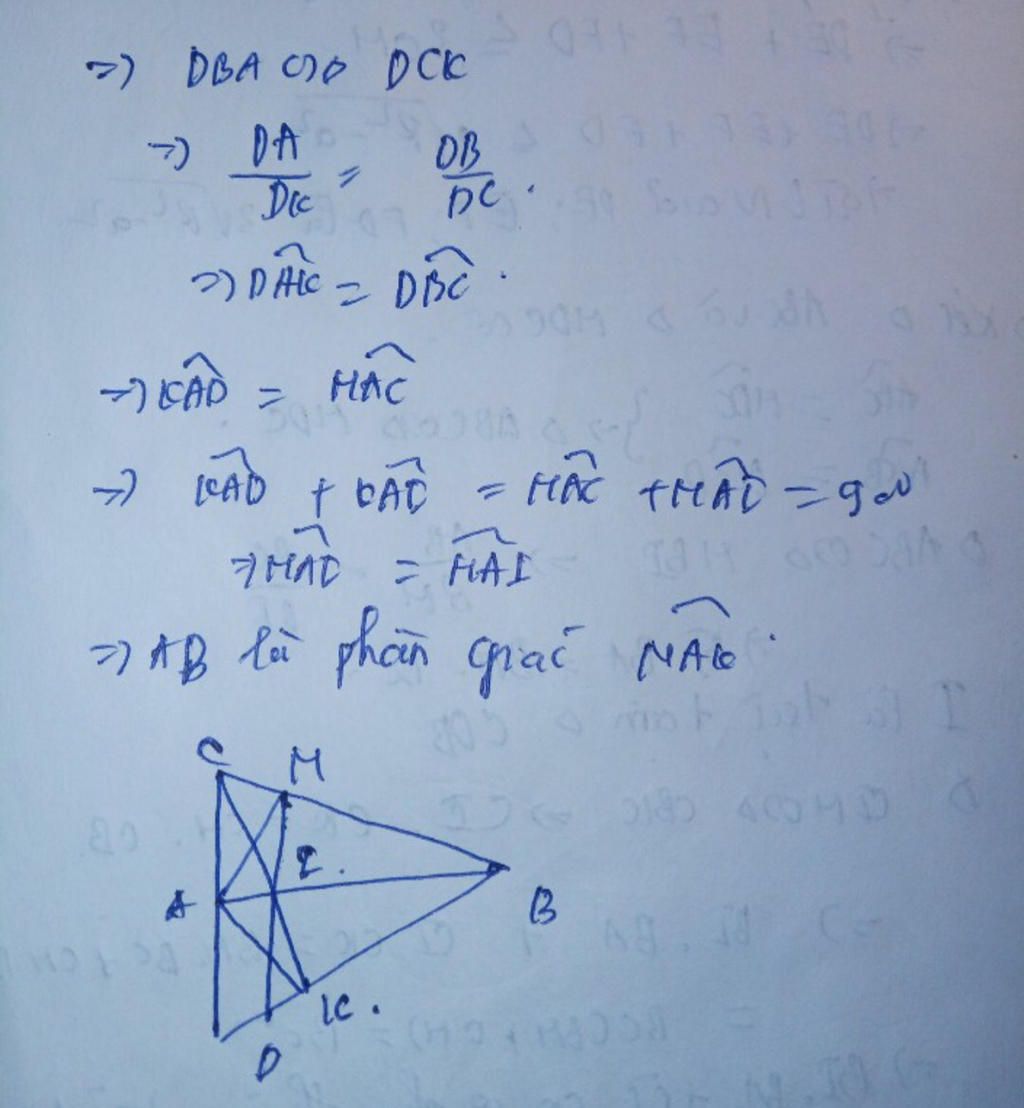 => DBA ∽ DCK
=> DA/DK = DB/DC.
=> DAK = DBC.
=> KAD = HAC
=> KAD + KAI = HAC + HAI = 90
=> HAI = HAI
=> AB là phân giác MAK.
C
M
I.
A
B
K.
D